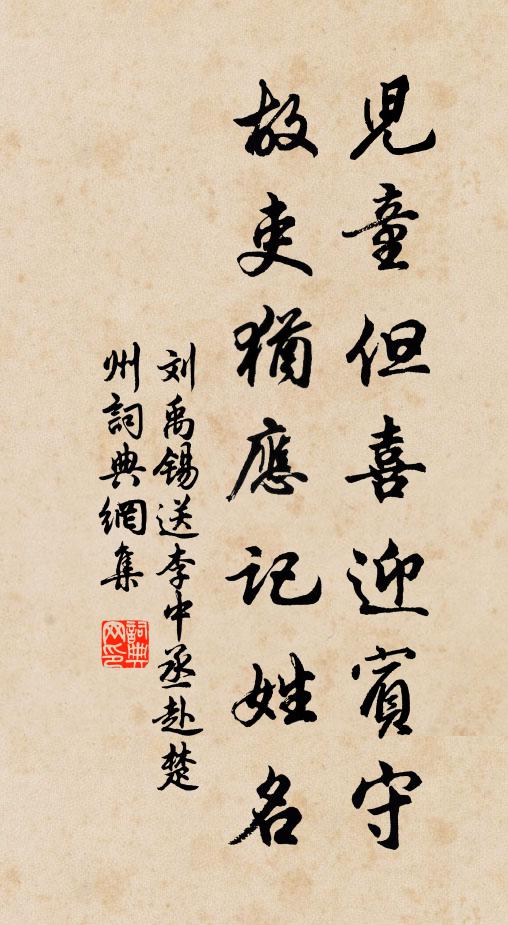 兒童但喜迎賓守
故吏猶應記姓名
刘禹锡送李中丞赴楚
州詞典網集
詞典
网印